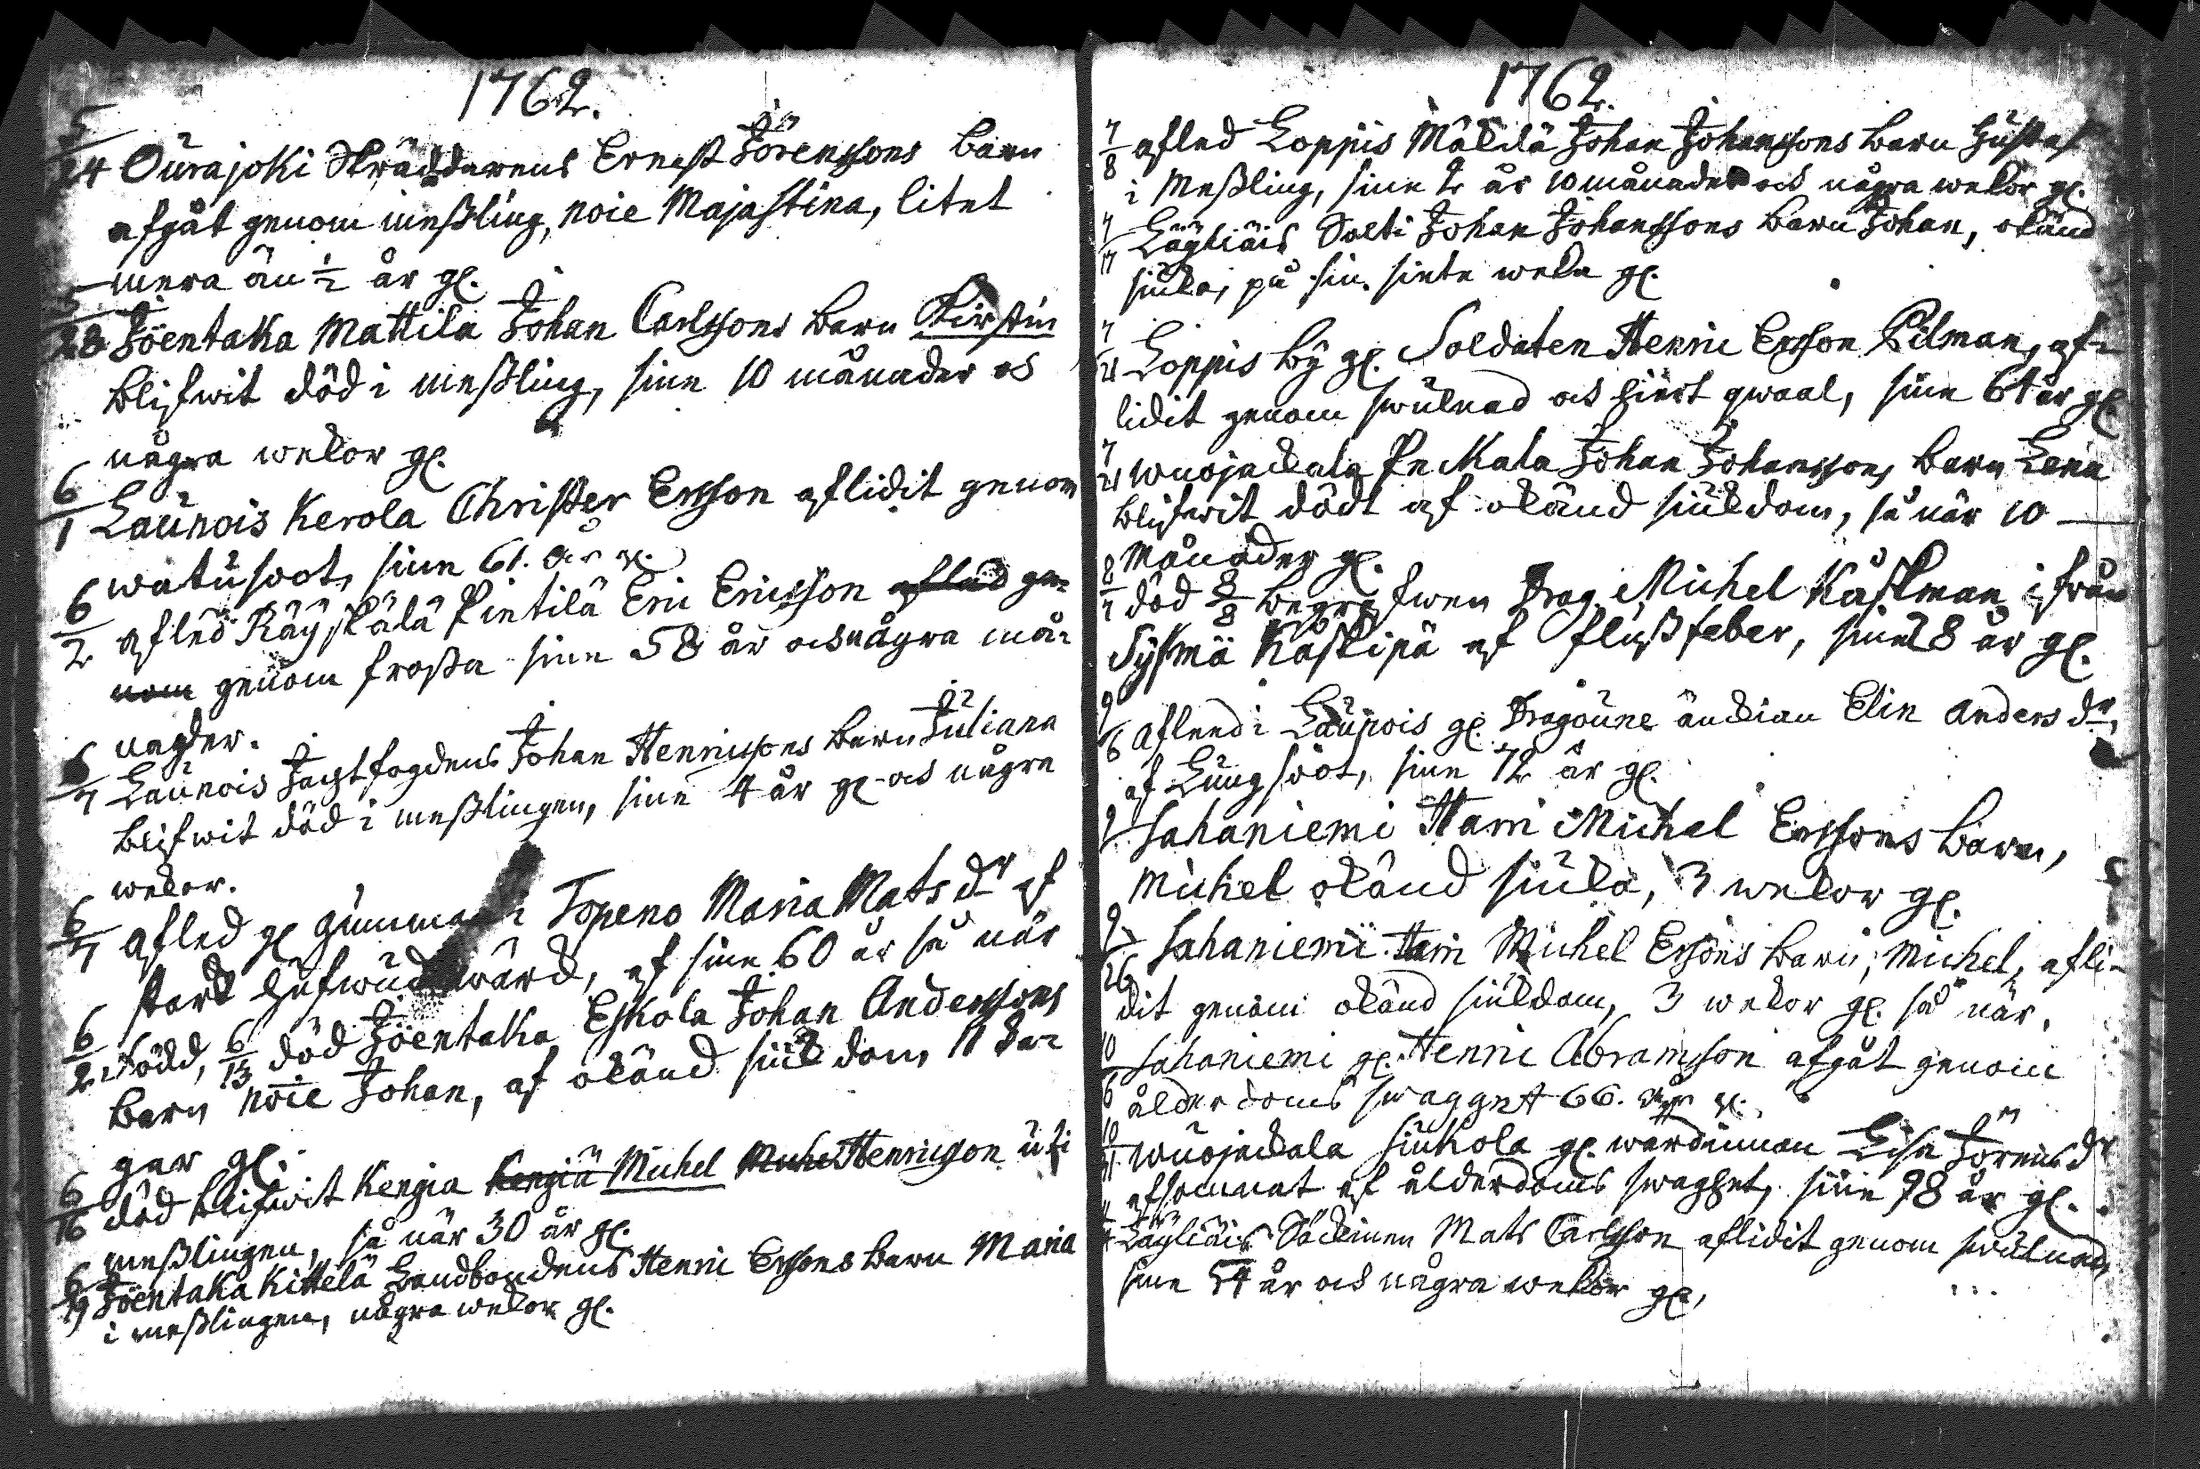 1762.
5/24 Oürajoki Skräddarens Ernest Jörenssons barn
afgåt genom messling, noie Majastina, litet
mera än 1/2 år gl.
5/28 Joentaka Mattila Johan Carlssons barn Kirstin
blifwit död i messling, sine 10 månader os
några wekor gl.
6/1 Laünois Kerola Christer Ersson aflidit genom
watüsoot, sine 61. år gl.
6/2 afled Räyskälä Pintilä Eric Ericsson afled ge-
nom genom frossa sine 58 år och några må-
nader.
6/7 Laünois Jagtfogdens Johan Henricssons barn Jüliana
blifwit död i messlingen, sine 4 år gl och några
wekor.
6/7 afled gl gumma i Topeno Maria Mats dr af
stark hufwüdwärck, af sine 60 år så när
6/2 född, 6/13 död Joentaka Eskola Johan Anderssons
barn noie Johan, af okänd siükdom 11 da-
gar gl.
6/16 död blifwit Kergia Kergiä Michel Miche Henricsson üti
messlingen, så när 30 år gl.
6/19 Joentaka Kittelä Landbondens Henric Erssons barn Maria
i messlingen, några wekor gl.
1762.
7/8 afled Loppis Mäkilä Johan Johanssons barn Gustaf
i Messling, sine 2 år 10 månader och några wekor gl.
7/17 Läyliäis Solti Johan Johanssons barn Johan, okänd
siüka, på sin siete weka gl.
7/21 Loppis by gl. Soldaten Henric Ersson Pilman, af-
lidit genom swülnad och hiert qwaal, sine 61 år gl
7/21 Wuojackala Peckala Johan Johanssons barn Lena
blifwit dödt af okänd siükdom, så när 10
Månader gl.
8/7 död 8/8 begrafwen Drag. Michel Kåskman ifrån
Sysmä Kåskipä af flussfeber, sine 28 år gl.
9/6 afleed i Laünois gl. Dragoune änckian Elin Anders dr,
af Lüngsoot, sine 72 år gl.
9 Sahaniemi Harri Michel Erssons barn,
Michel okänd siüka, 3 wekor gl.
9/26 Sahaniemi Harri Michel Erssons barn, Michel, afli-
dit genom okänd siükdom, 3 wekor gl. så när,
10/6 Sahaniemi gl. Henric Abramsson afgåt genom
ålderdoms swagget 66. år gl.
10/21 Wuojackala Siükola gl. wärdinnan Lisa Jörens dr
afsomnat af ålderdoms swaghet, sine 78 år gl.
Läyliäis Säckinen Mats Carlsson aflidit genom swülnad,
sine 54 år och några wekor gl,